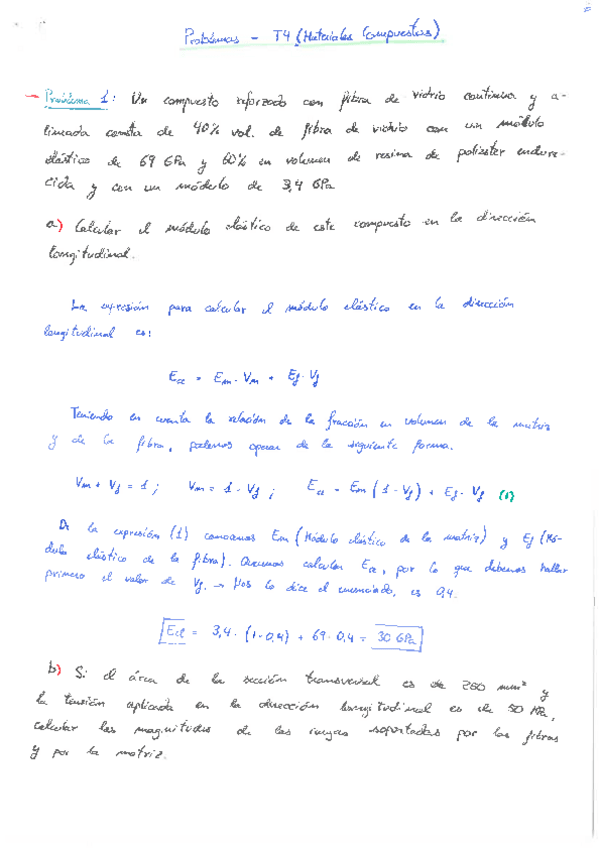 Problemas - T4 (Materiales Compuestos)
- Problema 1: Un compuesto reforzado con fibra de vidrio continua y a-
lineada consta de 40% vol. de fibra de vidrio con un módulo
elástico de 69 GPa y 60% en volumen de resina de poliester endure-
cida y con un módulo de 3,4 GPa
a) Calcular el módulo elástico de este compuesto en la dirección
longitudinal.
La expresión para calcular el módulo elástico en la dirección
longitudinal es:
Ecl = Em · Vm + Ef · Vf
Teniendo en cuenta la relación de la fracción en volumen de la matriz
y de la fibra, podemos operar de la siguiente forma.
Vm + Vf = 1 ; Vm = 1 - Vf ; Ecl = Em (1 - Vf) + Ef · Vf (1)
De la expresión (1) conocemos Em (Módulo elástico de la matriz) y Ef (Mó-
dulo elástico de la fibra). Queremos calcular Ecl, por lo que debemos hallar
primero el valor de Vf. → Nos lo dice el enunciado, es 0,4.
Ecl = 3,4 · (1-0,4) + 69 · 0,4 = 30 GPa
b) Si el área de la sección transversal es de 250 mm² y
la tensión aplicada en la dirección longitudinal es de 50 MPa,
calcular las magnitudes de las cargas soportadas por las fibras
y por la matriz.